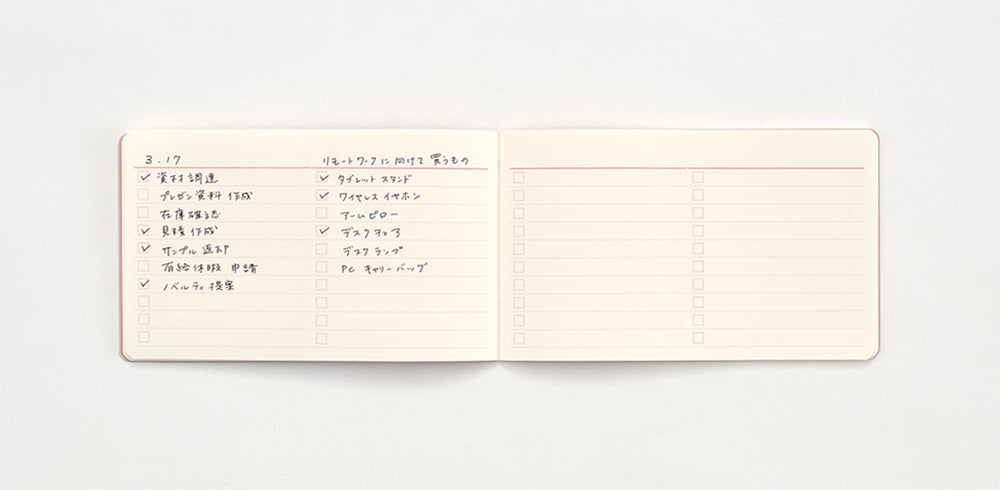 3.17
資材調達
プレゼン資料作成
在庫確認
見積作成
サンプル返却
有給休暇 申請
ノベルティ提案
リモートワークに向けて買うもの
タブレットスタンド
ワイヤレスイヤホン
アームピロー
デスクチェア
デスクランプ
PCキャリーバッグ